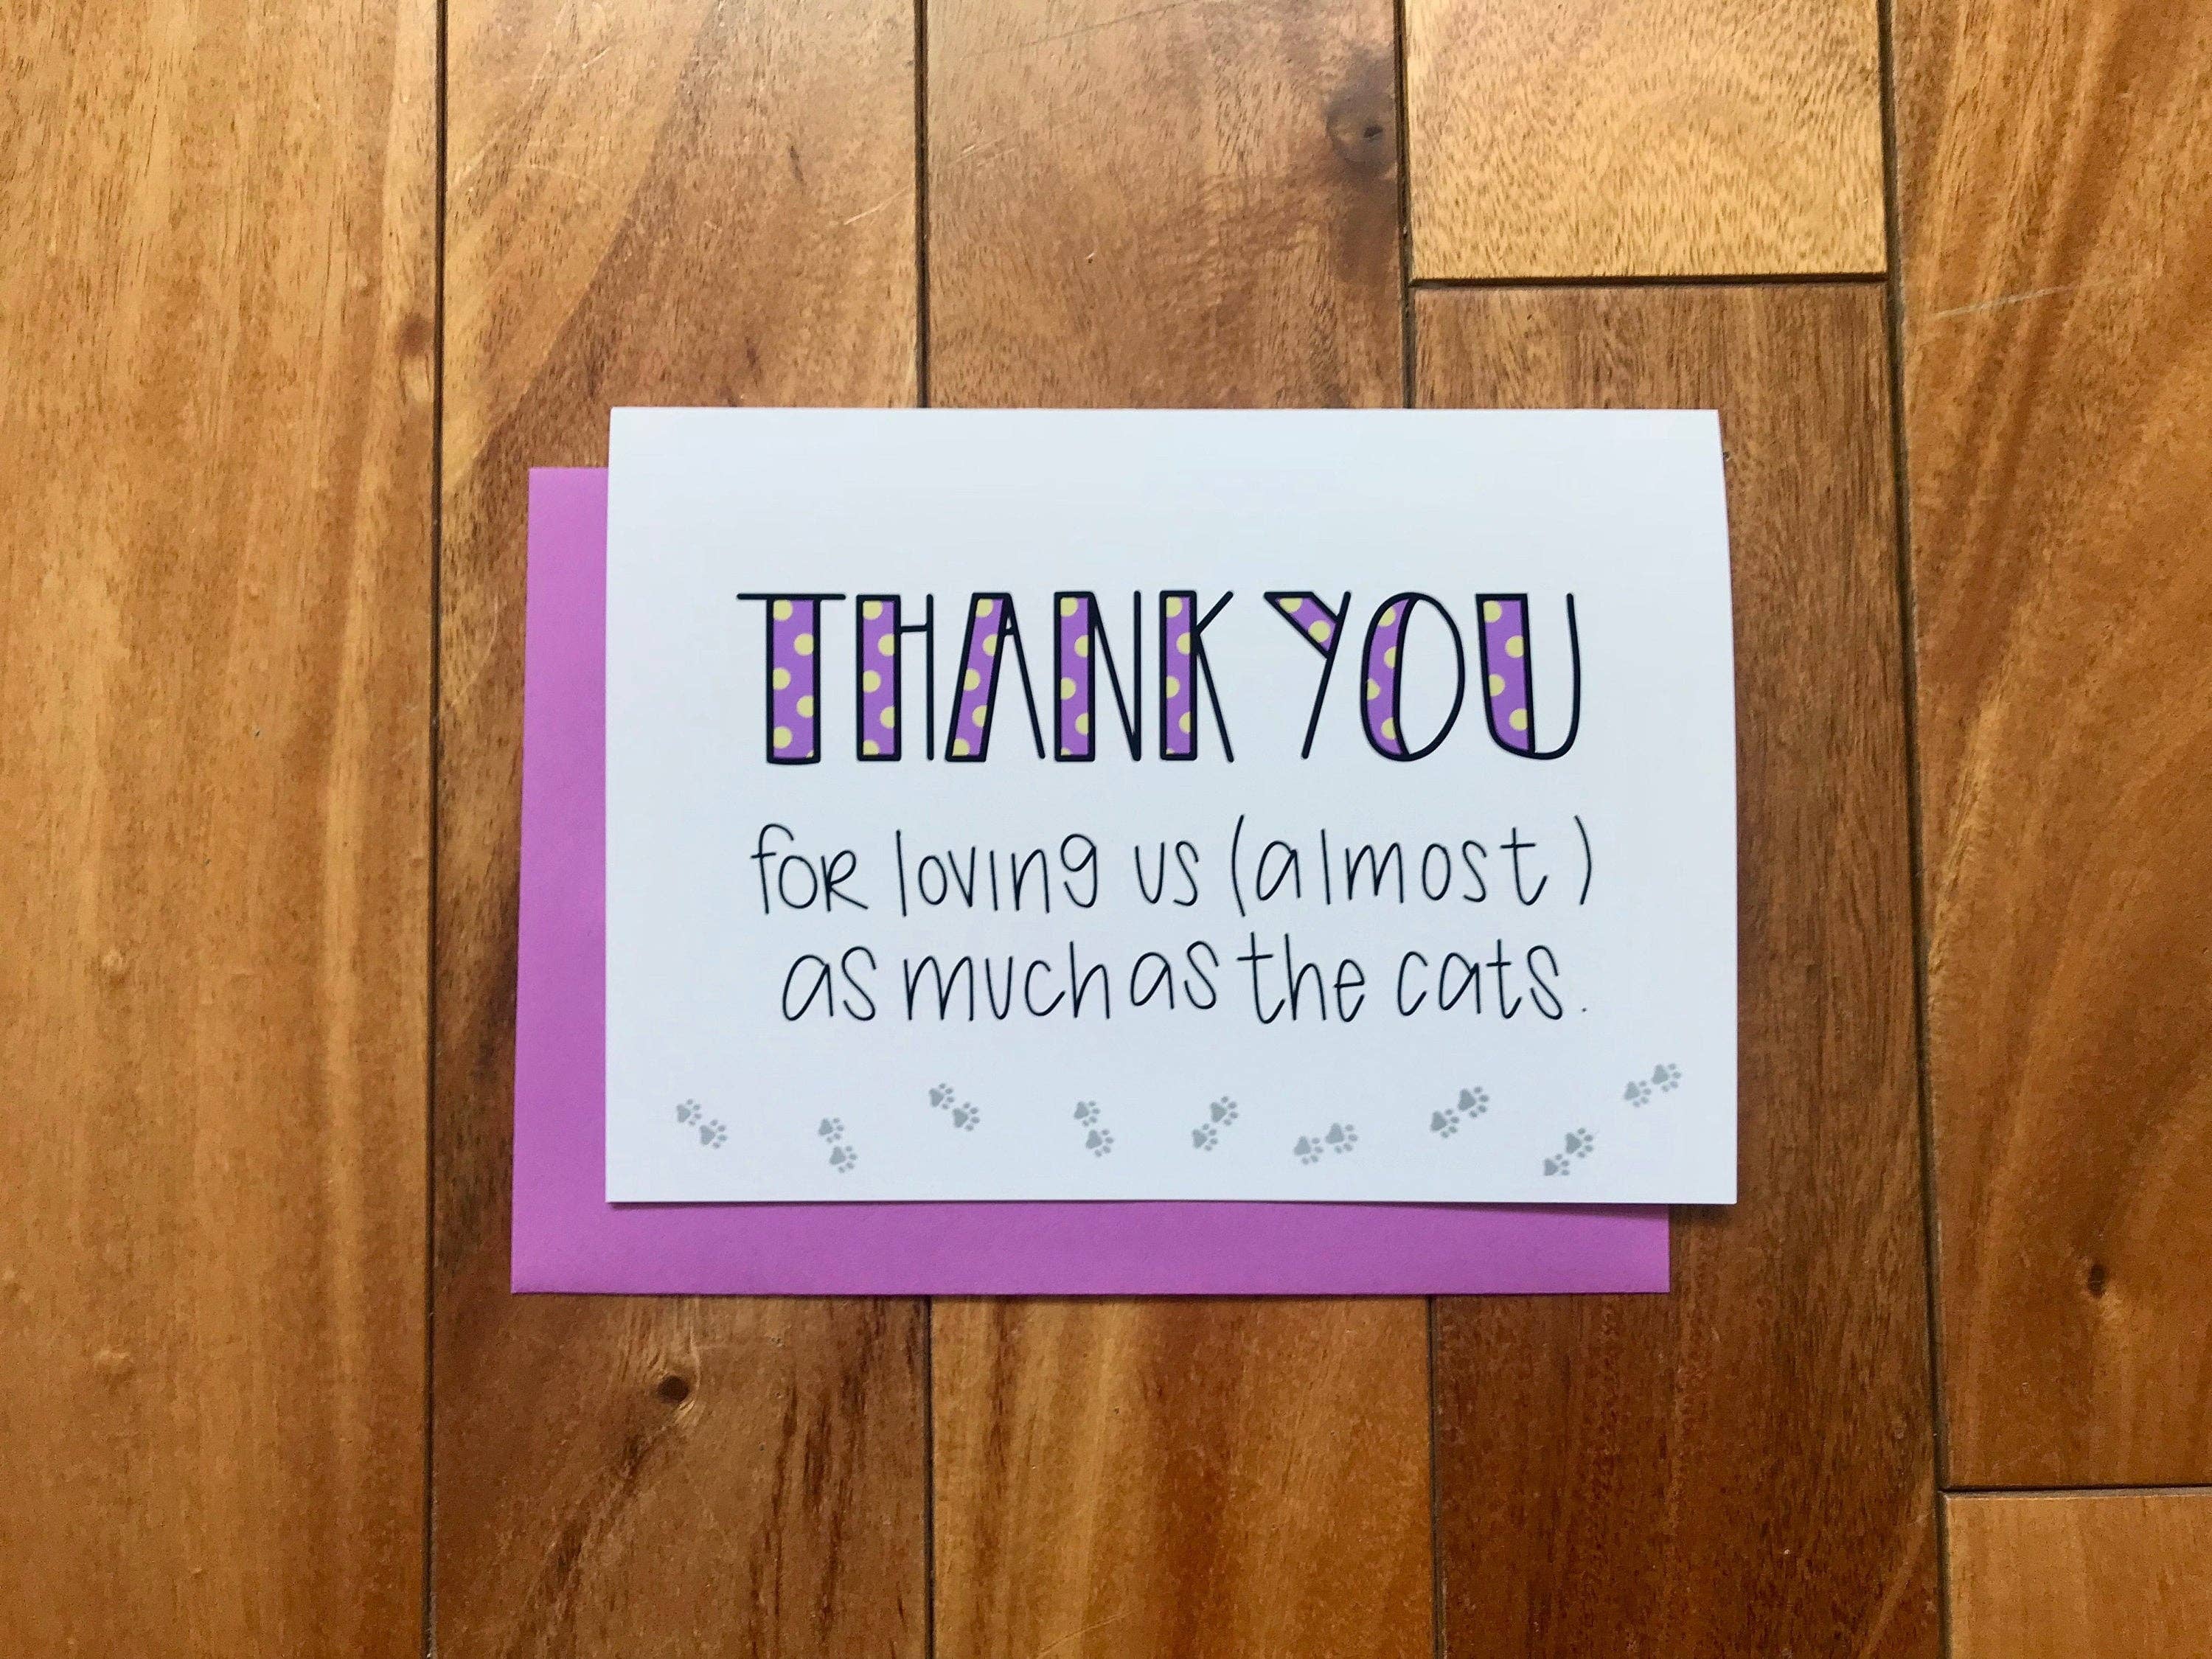 THANK YOU
for loving us (almost)
as much as the cats.